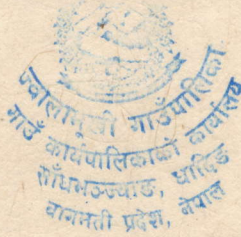 ज्वालामूखी गाउँपालिका
गाउँ कार्यपालिकाको कार्यालय
साँघभञ्ज्याङ, धादिङ
वागमती प्रदेश, नेपाल